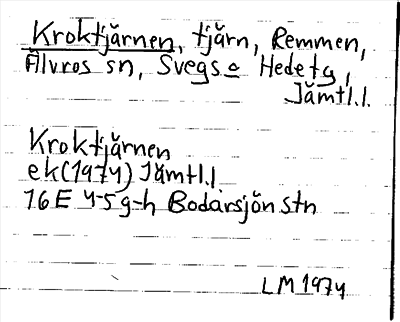 Kroktjärnen, tjärn, Remmen,
Älvros sn, Svegs o Hede tg,
Jämtl.l.
Kroktjärnen
ek(1974) Jämtl.l.
16E 4-5 g-h Bodarsjön stn
LM 1974